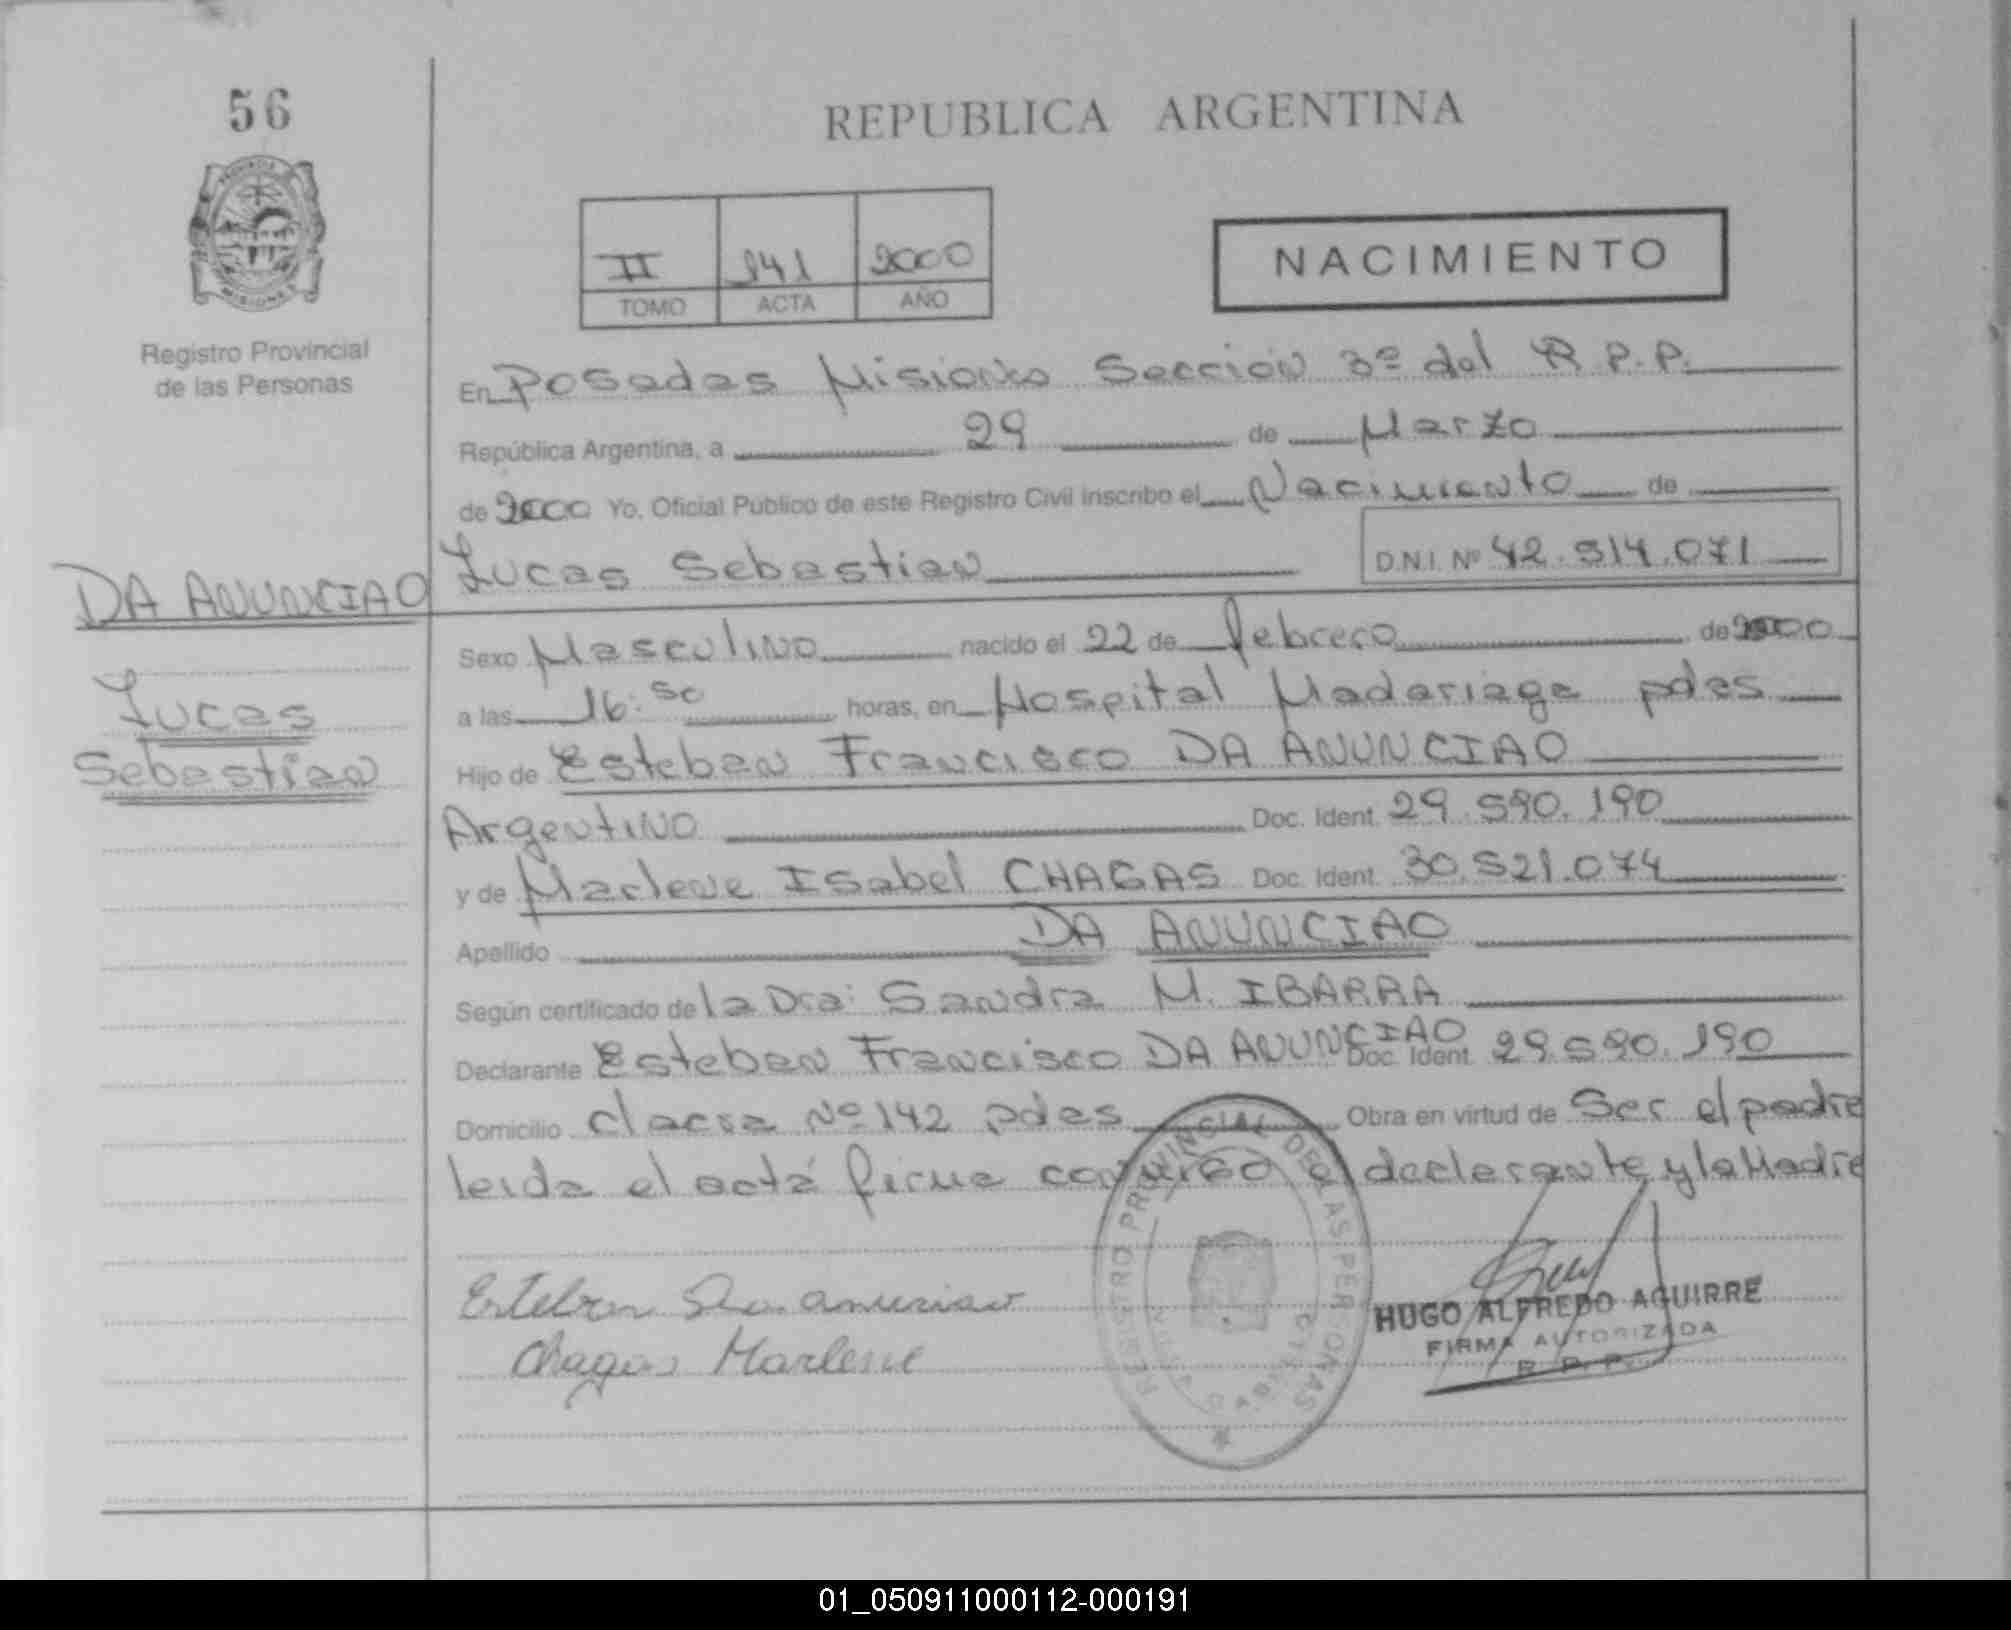 56
REPUBLICA ARGENTINA
PROVINCIA
MISIONES
II 141 2000
TOMO ACTA AÑO
NACIMIENTO
Registro Provincial
de las Personas
En Posadas Misiones Sección 3º del R.P.P.
República Argentina, a 29 de Marzo
de 2000 Yo, Oficial Público de este Registro Civil inscribo el Nacimiento de
DA ANUNCIAO Lucas Sebastian D.N.I. Nº 42.514.071
Lucas
Sebastian
Sexo Masculino nacido el 22 de febrero de 2000
a las 16:50 horas, en Hospital Madariaga pdas
Hijo de Esteban Francisco DA ANUNCIAO
Argentino Doc. Ident. 29.590.190
y de Marlene Isabel CHAGAS Doc. Ident. 30.521.074
Apellido DA ANUNCIAO
Según certificado de la Dra: Sandra M. IBARRA
Declarante Esteban Francisco DA ANUNCIAO Doc. Ident. 29.590.190
Domicilio chacra Nº 142 pdas Obra en virtud de Ser el padre
leida el acta firma conmigo el declarante y la Madre
Esteban Da anunciao
Chagas Marlene
REGISTRO PROVINCIAL DE LAS PERSONAS
HUGO ALFREDO AGUIRRE
FIRMA AUTORIZADA
R. P. P.
01_050911000112-000191